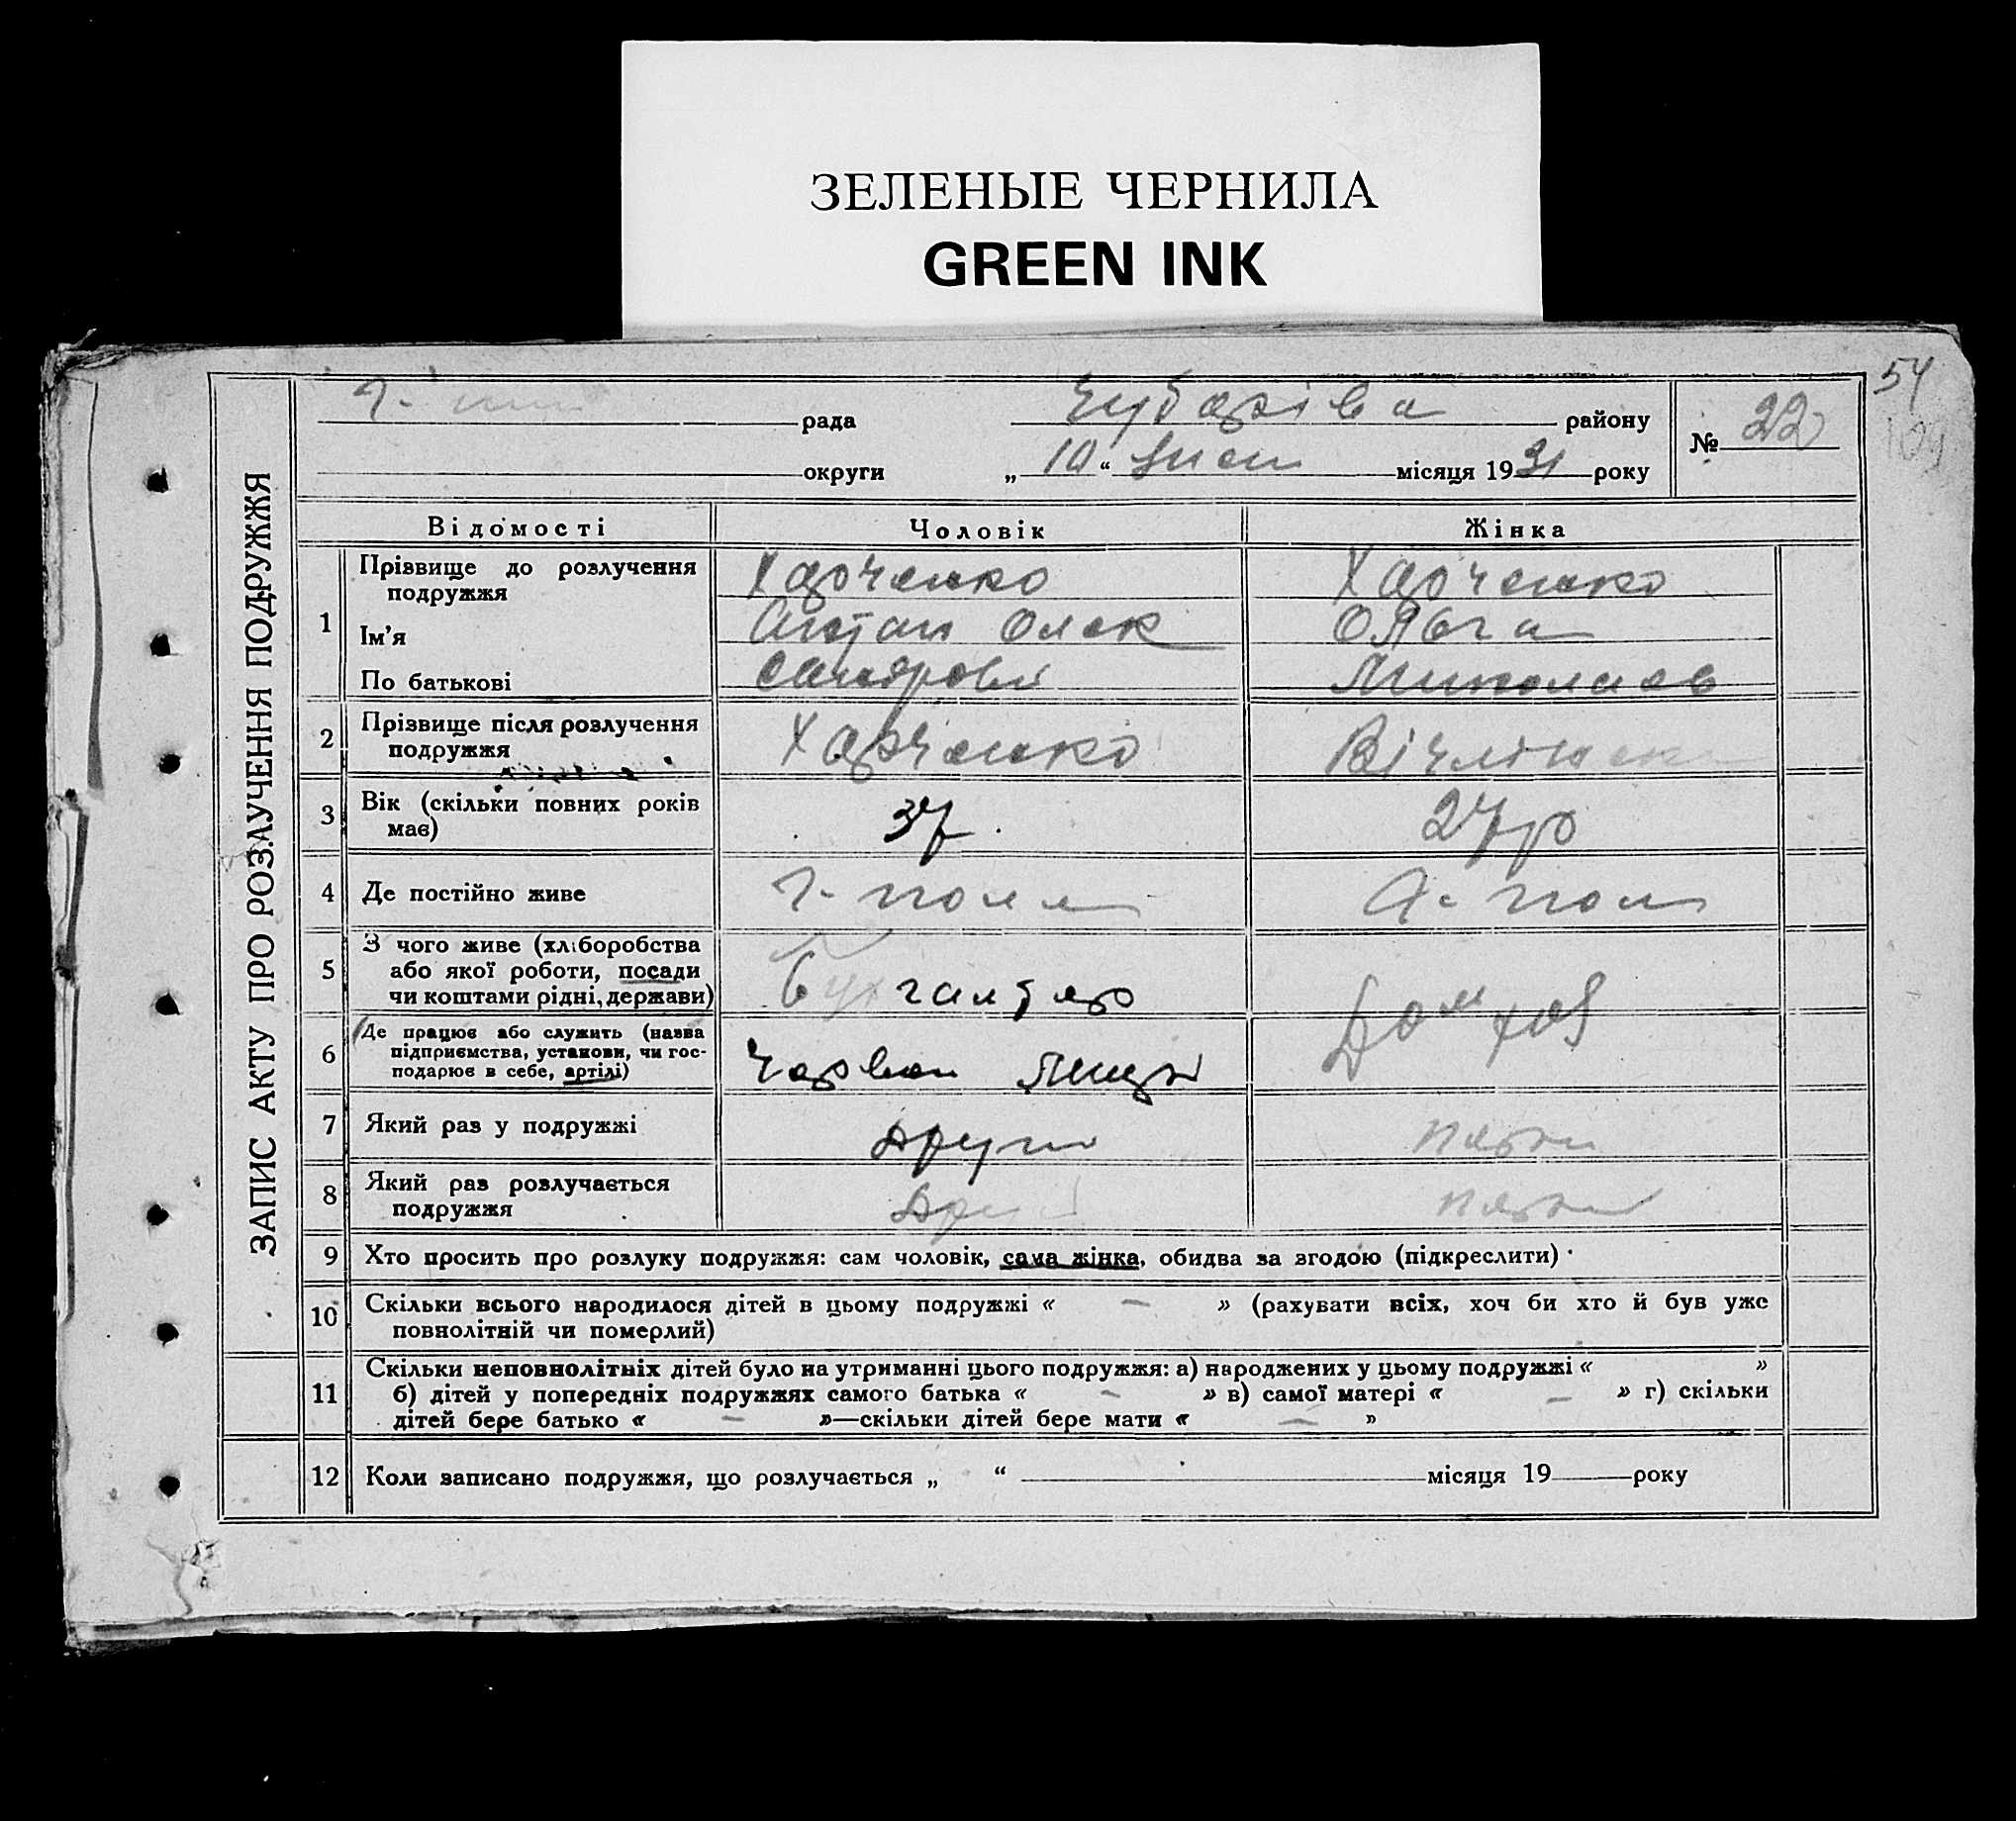 ЗЕЛЕНЫЕ ЧЕРНИЛА
GREEN INK
54
рада Чубарівка району № 22
округи „ 10 “ місяця 1931 року
ЗАПИС АКТУ ПРО РОЗЛУЧЕННЯ ПОДРУЖЖЯ
Відомості Чоловік Жінка
1 Прізвище до розлучення подружжя Харченко Харченко
Ім'я Антон Олек Ольга
По батькові сандрови Миколаев
2 Прізвище після розлучення подружжя Харченко
3 Вік (скільки повних років має) 37 27 р
4 Де постійно живе Г-поля Г-поля
5 З чого живе (хліборобства або якої роботи, посади чи коштами рідні, держави) Бухгалтер Дом хоз
6 Де працює або служить (назва підприємства, установи, чи господарює в себе, артілі) Червон
7 Який раз у подружжі други
8 Який раз розлучається подружжя
9 Хто просить про розлуку подружжя: сам чоловік, сама жінка, обидва за згодою (підкреслити)
10 Скільки всього народилося дітей в цьому подружжі « — » (рахувати всіх, хоч би хто й був уже
повнолітній чи померлий)
11 Скільки неповнолітніх дітей було на утриманні цього подружжя: а) народжених у цьому подружжі « »
б) дітей у попередніх подружжях самого батька « — » в) самої матері « — » г) скільки
дітей бере батько « — »—скільки дітей бере мати « — »
12 Коли записано подружжя, що розлучається „ “ місяця 19 року